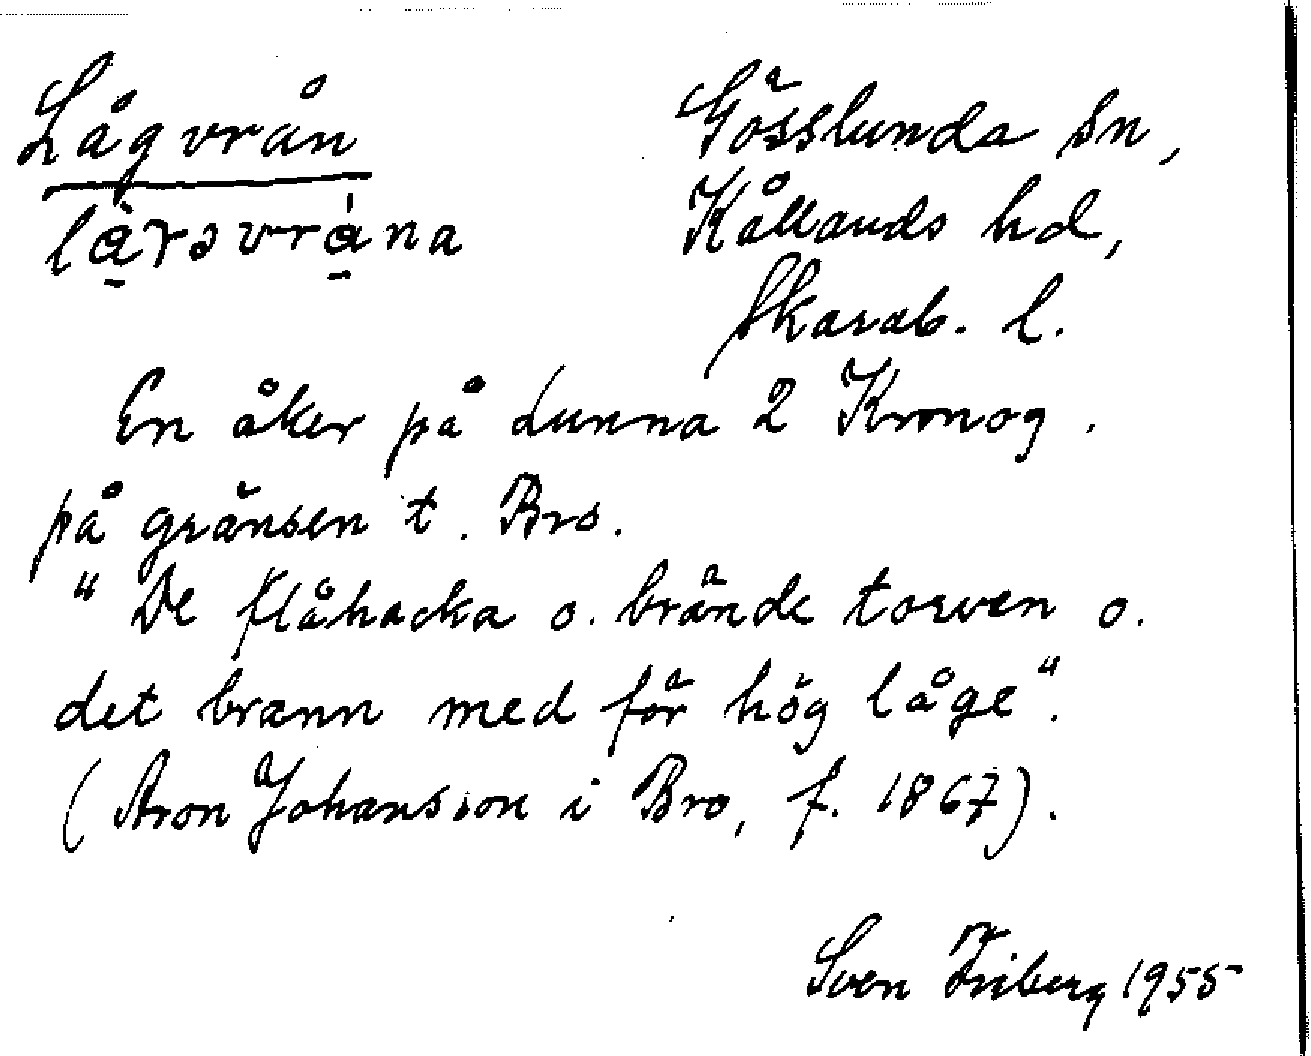 Lågvrån
Gösslunda sn,
Kållands hd,
Skarab. l.
En åker på Lunna 2 Kronog.
på gränsen t. Bro.
"De flåhacka o. brände torven o.
det brann med för hög låge".
(Aron Johansson i Bro, f. 1867).
Sven Friberg 1955